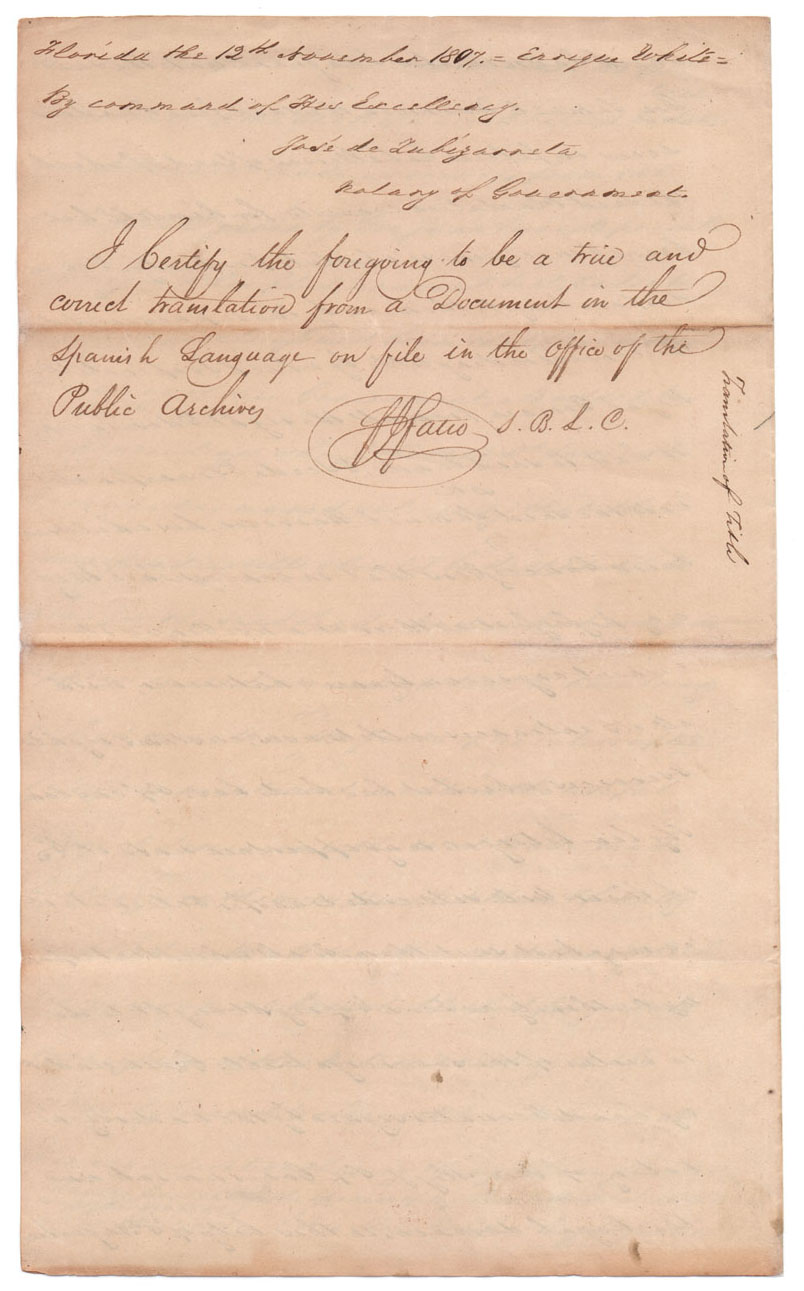 Florida the 12th November 1807. = Enrique White =
By command of His Excellency.
José de Zubizarreta
Notary of Government.
I Certify the foregoing to be a true and
correct translation from a Document in the
Spanish Language on file in the office of the
Public Archives
S. B. L. C.
Translation of Title